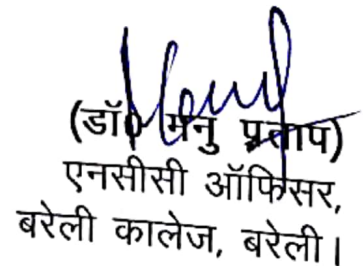 (डॉ० मनु प्रताप)
एनसीसी ऑफिसर,
बरेली कालेज, बरेली।